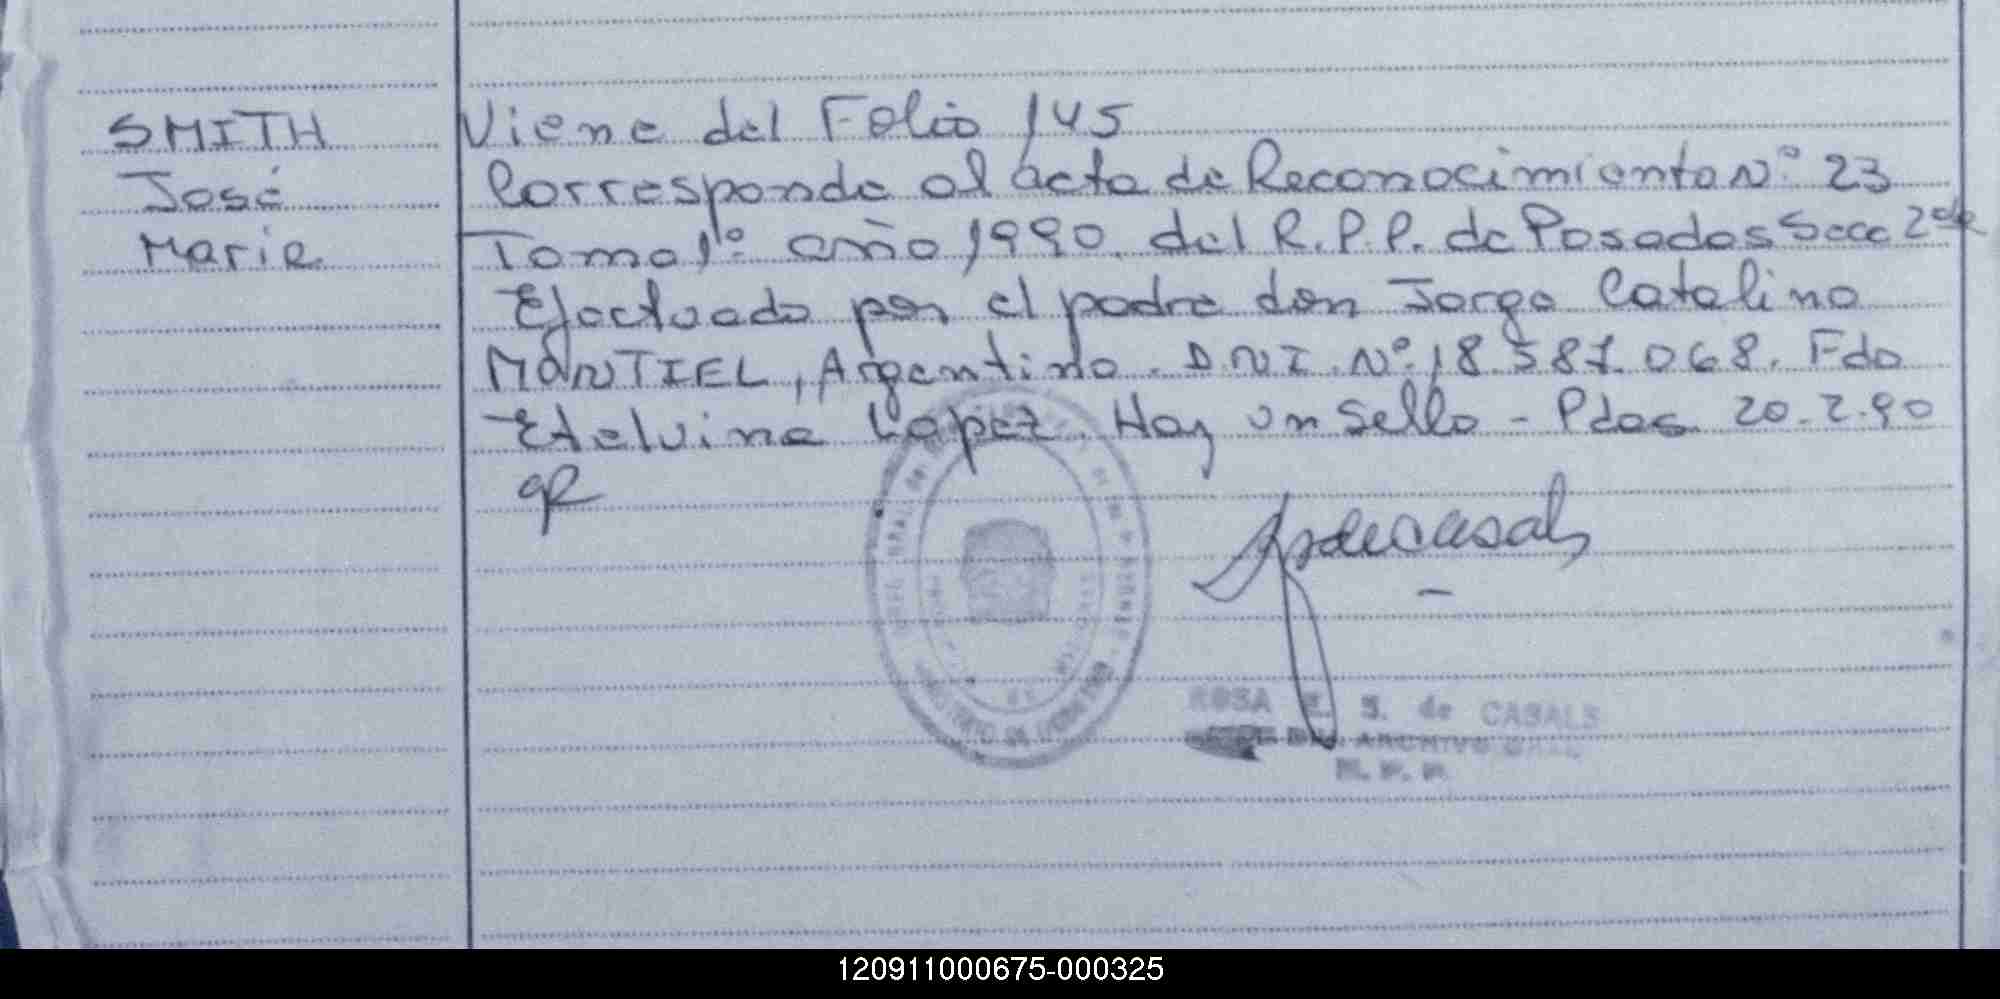 SMITH
José
Maria
Viene del Folio 145
Corresponde al acta de Reconocimiento Nº 23
Tomo 1º año 1990. del R.P.P. de Posadas Secc 2da
Efectuado por el padre don Jorge Catalino
MONTIEL, Argentino. D.N.I. Nº 18.587.068. Fdo
Etelvina Lopez. Hay un Sello - Pdas. 20.2.90
ROSA E. S. de CASALS
DEL ARCHIVO GRAL.
R. P. P.
120911000675-000325